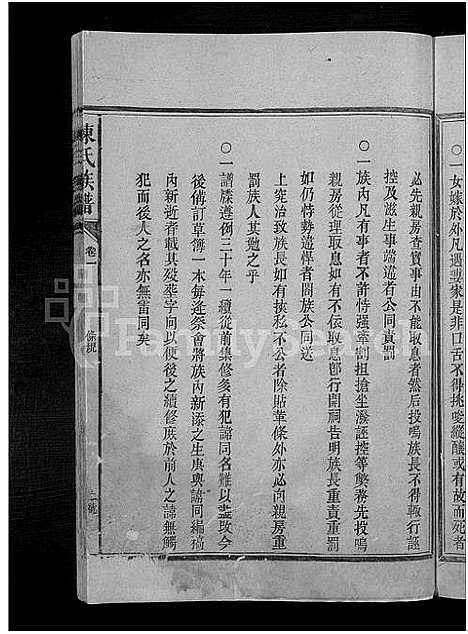 〇一女嫁於外凡遇東來是非口舌不得挑唆縱釀或有故而死者
必先親房查實事由不能取息者然後投鳴族長不得輒行誣
控及滋生事端違者公同責罰
〇一族內凡有事者不許恃强牽割担搶坐潑誣控等獘務先投鳴
親房從理取息倘有不依取息卽行開祠告明族長重責重罰
如仍恃勢違悍者闔族公同送
上究治致族長如有挾私不公者除貼葷條外亦必向親房重
罰族人其勉之乎
〇一譜牒遵例三十年一續從前集修多有犯諱同名難以盡改今
後俻訂草簿一本每逢祭會將族內新添之生庚與諱同編稿
內新逝者載其歿塟字向以便後之續修庶於前人之諱無觸
犯而後人之名亦無雷同矣
陳氏族譜
卷一
條規
FamilySearch